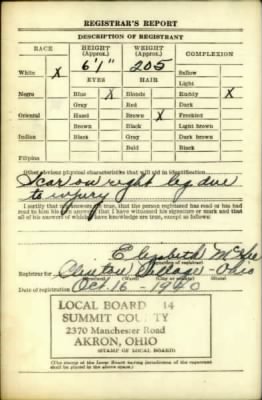 REGISTRAR'S REPORT
DESCRIPTION OF REGISTRANT
RACE HEIGHT (Approx.) WEIGHT (Approx.) COMPLEXION
White X 6'1" 205 Sallow
EYES HAIR Light
Negro Blue X Blonde Ruddy X
Gray Red Dark
Oriental Hazel Brown X Freckled
Brown Black Light brown
Indian Black Gray Dark brown
Bald Black
Filipino
Other obvious physical characteristics that will aid in identification
Scar on right leg due
to injury
I certify that my answers are true; that the person registered has read or has had
read to him his own answers; that I have witnessed his signature or mark and that
all of his answers of which I have knowledge are true, except as follows:
Elizabeth
(Signature of registrar)
Registrar for Clinton Village - Ohio
Date of registration Oct. 16 - 1940
LOCAL BOARD 14
SUMMIT COUNTY
2370 Manchester Road
AKRON, OHIO
(STAMP OF LOCAL BOARD)
(The stamp of the Local Board having jurisdiction of the registrant
shall be placed in the above space.)